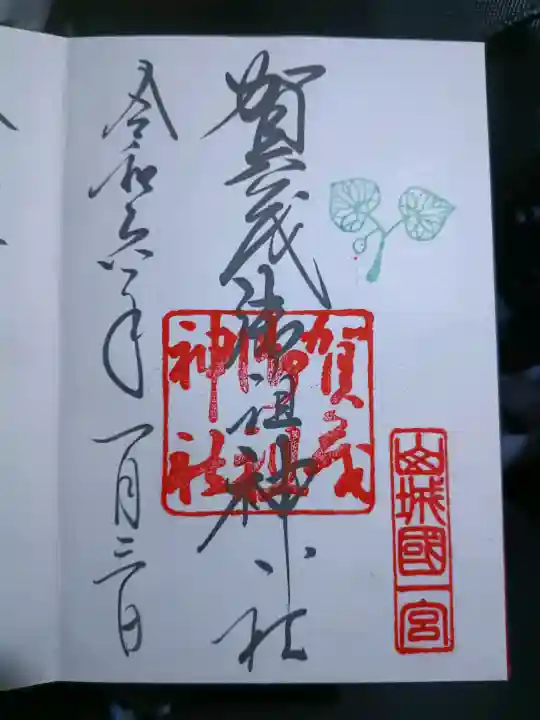 山城國一宮
賀茂御祖神社
賀茂御祖神社
令和六年一月三日